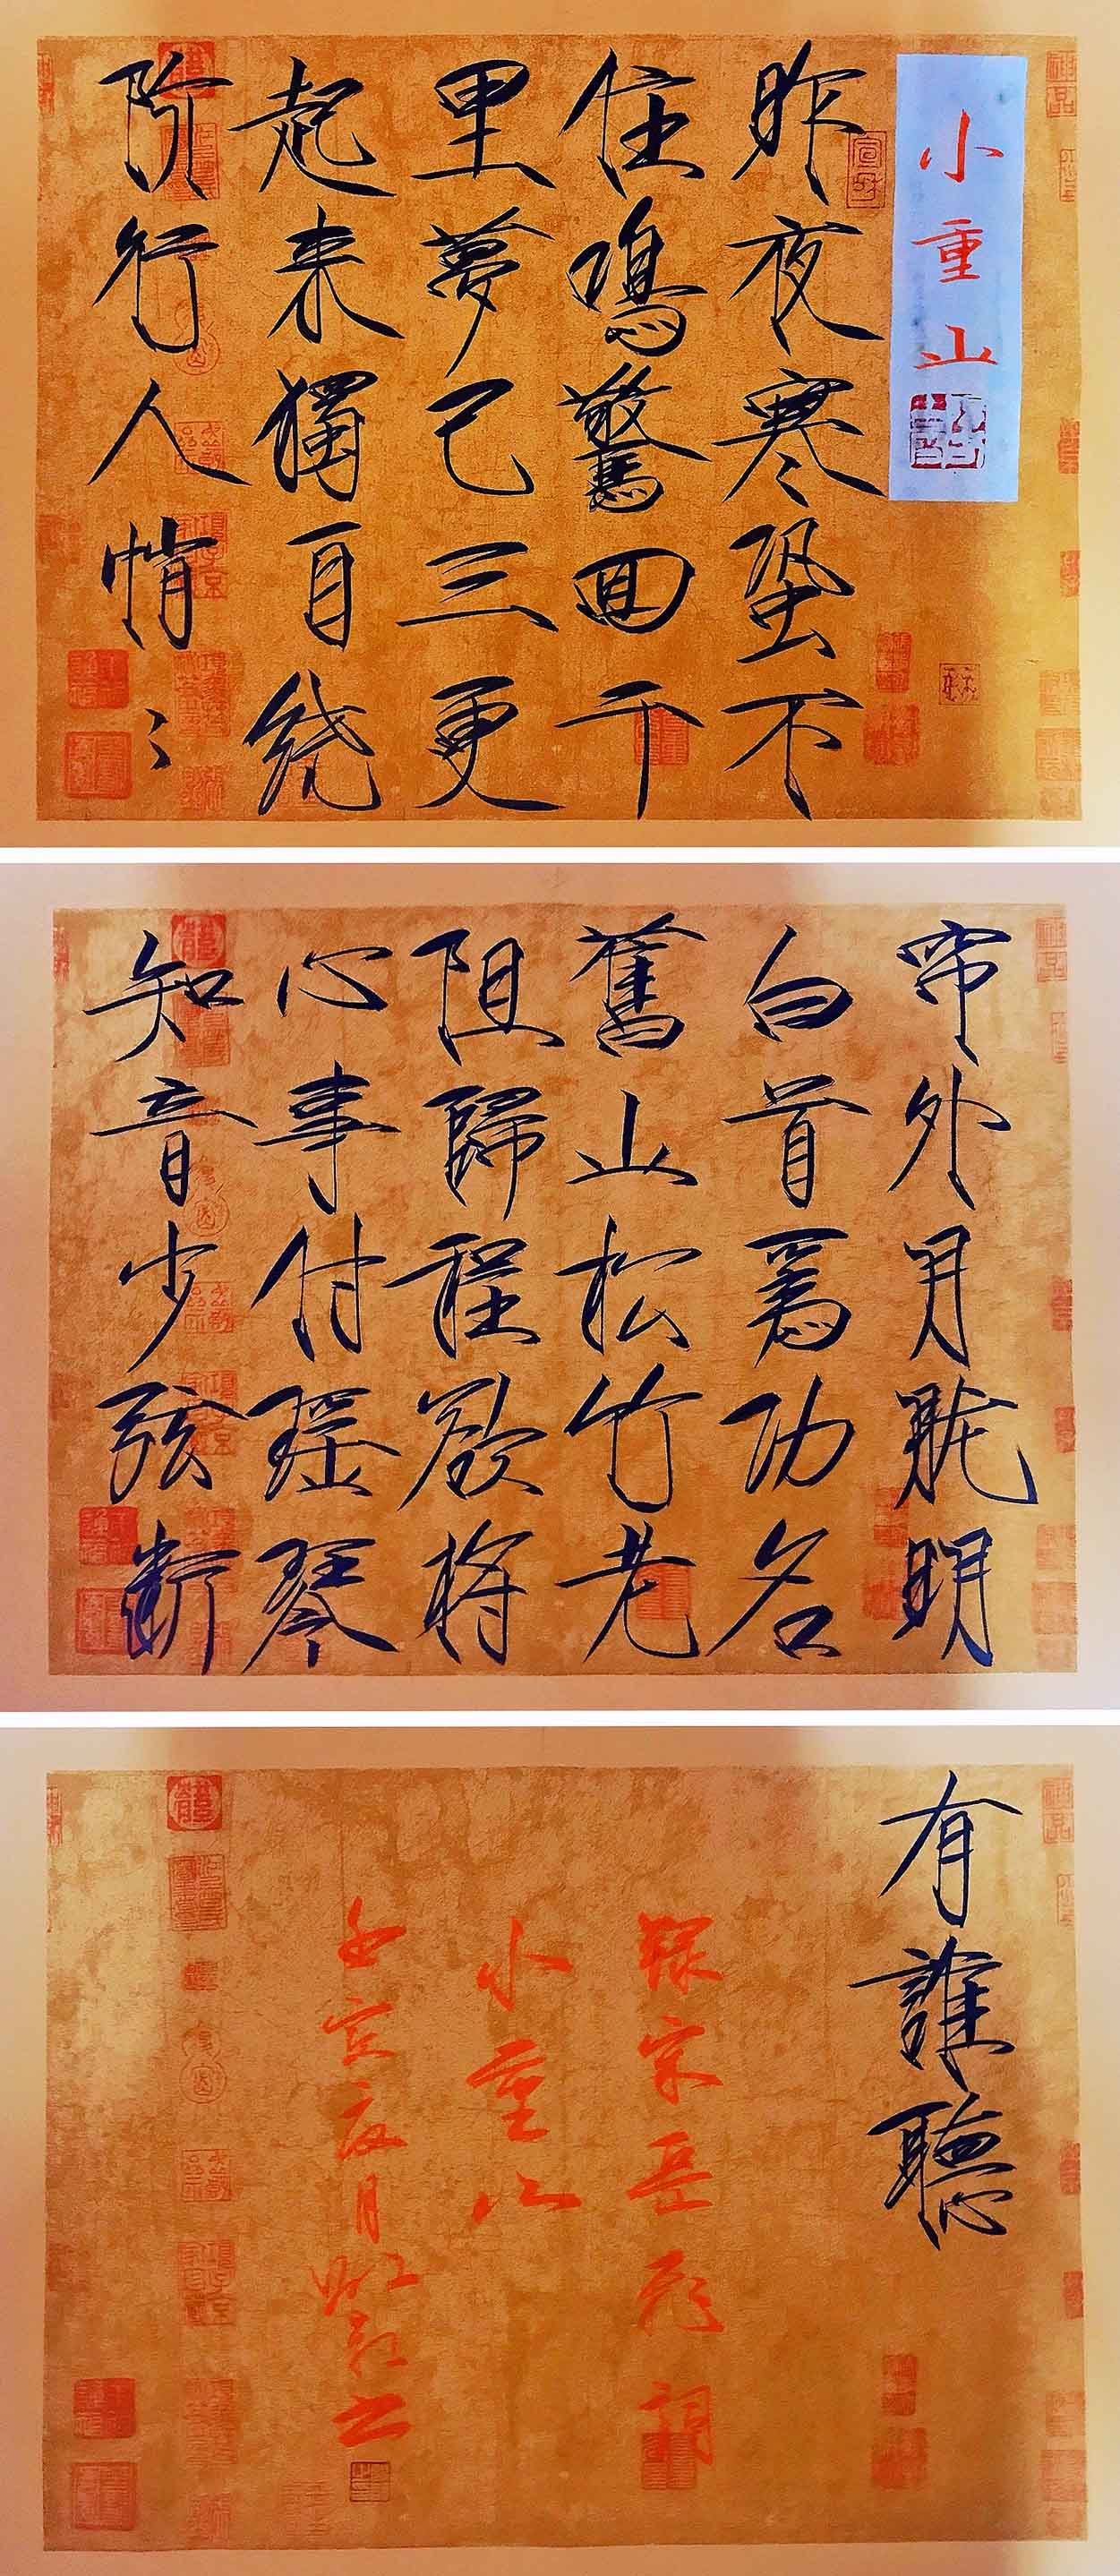 小重山
昨夜寒蛩不
住鳴驚回千
里夢已三更
起来獨自绕
阶行人悄〻
帘外月胧明
白首為功名
舊山松竹老
阻歸程欲将
心事付瑶琴
知音少弦断
有誰聽
録宋岳飛詞
小重山
壬寅夏月书